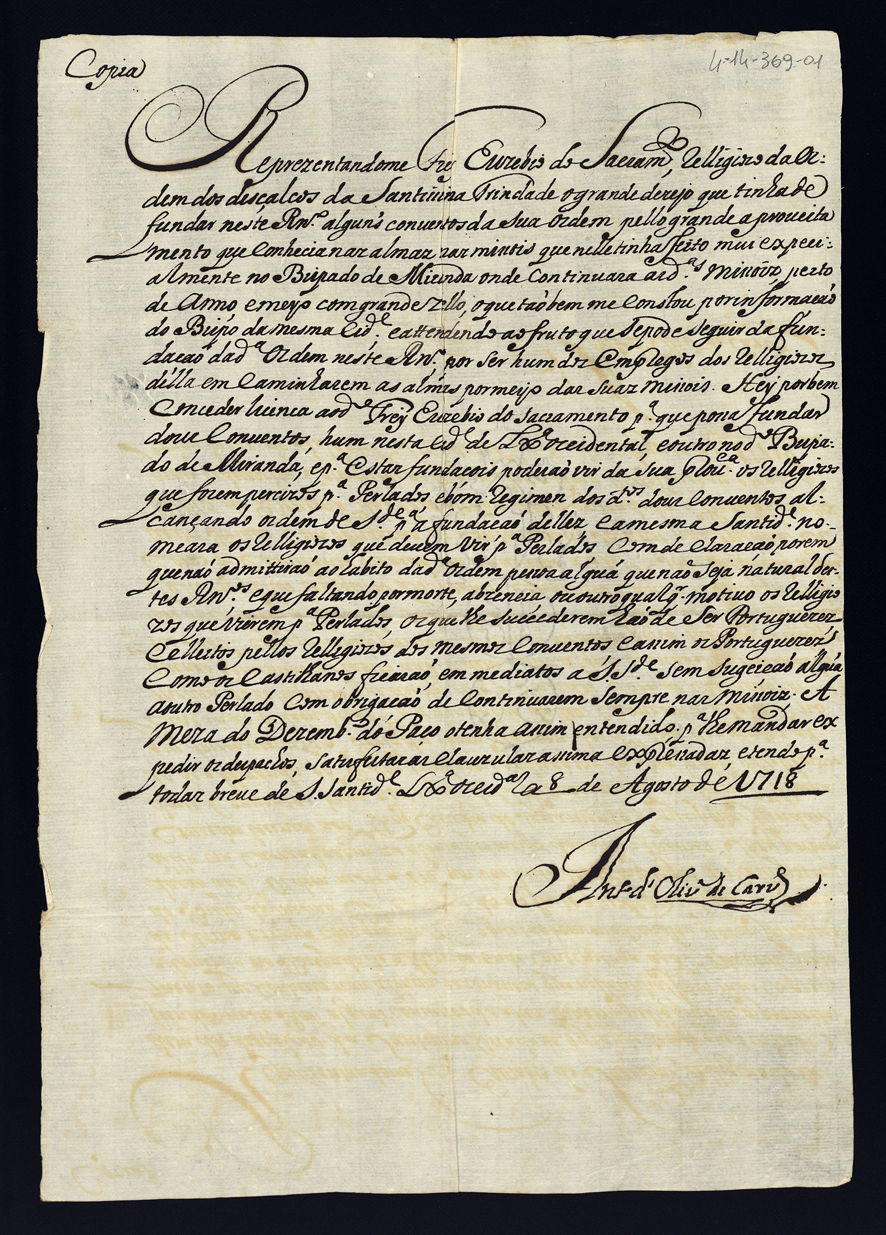 Copia
4-14-369-01
Reprezentandome Frey Euzebio do Sacram.to Relligiozo da Or:
dem dos descalços da Santissina Trindade o grande dezejo que tinha de
fundar neste Rn.º alguns conventos da Sua Ordem pello grande aproveita
mento que Conhecia nas almas nas missois que nelle tinha feito mui expeci:
almente no Bispado de Miranda onde Continuara as d.as Missóiz, perto
de Anno e meyo com grande zello, o que taõ bem me Constou por informacaõ
do Bispo da mesma Cid.e e attendendo ao fruto que se pode seguir da fun:
dacaõ da d.ª Ordem neste Rn.º por ser hum dos Empregos dos Relligiozos
della em Caminharem as almas por meyo das Suas Missois. Hey por bem
Conceder licenca ao d.º Frey Euzebio do Sacramento p.ª que possa fundar
dous Conventos, hum nesta Cid.e de Lx.ª Occidental, e outro no d.º Bispa-
do de Miranda, e p.ª Estas fundacois poderaõ vir da Sua Prou.ca os Relligiozos
que forem percizos p.ª Perlados e bom Regimen dos d.os dous Conventos, al-
cançando ordem de S. S.de p.ª a fundacaõ delles, e a mesma Santid.e no-
meara os Relligiozos que devem vir p.ª Perlados Com declaracaõ porem
que naõ admittiraõ ao habito da d.ª Ordem pessoa algũa que naõ Seja natural des-
tes Rn.os e que faltando por morte, abzencia ou outro qualq.r motivo os Relligio
zos que vierem p.ª Perlados, os que lhe sucederem haõ de Ser Portuguezes
Ellectos pellos Relligiozos dos mesmos Conventos e assim os Portuguezes
Como os Castilhanos ficaraõ em mediatos a S. S.de sem sugeicaõ algũa
a outro Perlado Com obrigacaõ de Continuarem Sempre nas Missóiz. A
Meza do Dezemb.º do Paço o tenha assim entendido p.ª lhe mandar ex
pedir os despachos, satisfeitas as Clauzulas assima Expressadas, e tendo p.ª
todas breve de S. Santid.e Lx.ª Occid.al a 8 de Agosto de 1718
Ant.º d' Oliv.ª de Carv.º